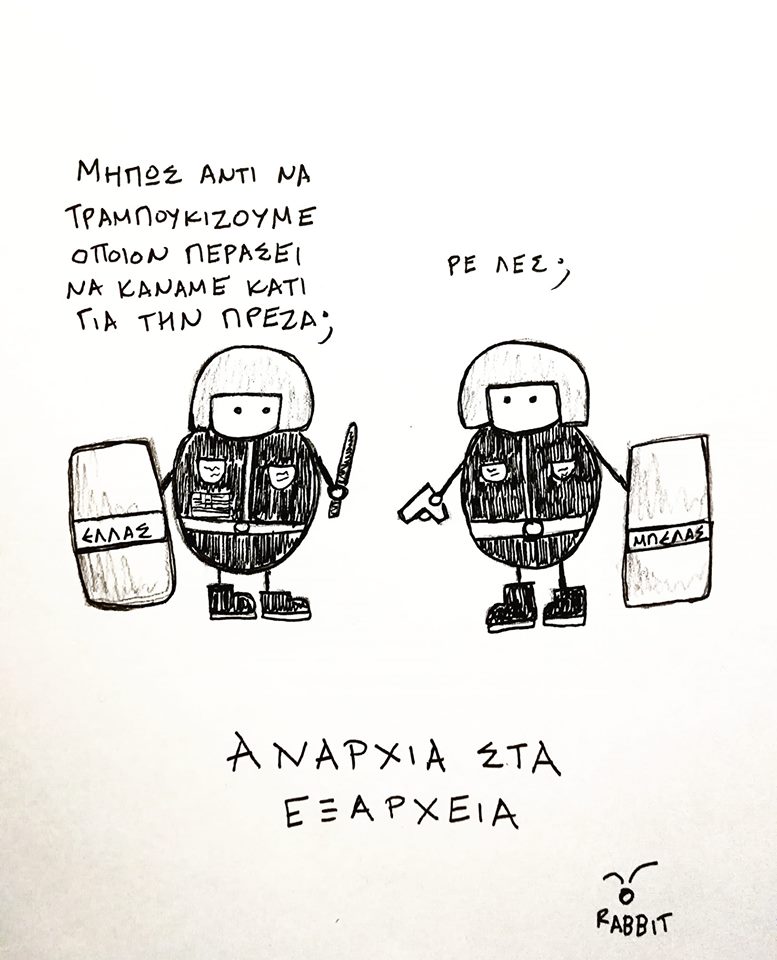 ΜΗΠΩΣ ΑΝΤΙ ΝΑ
ΤΡΑΜΠΟΥΚΙΖΟΥΜΕ
ΟΠΟΙΟΝ ΠΕΡΑΣΕΙ
ΝΑ ΚΑΝΑΜΕ ΚΑΤΙ
ΓΙΑ ΤΗΝ ΠΡΕΖΑ;
ΡΕ ΛΕΣ;
ΕΛΛΑΣ
ΜΠΕΛΑΣ
ΑΝΑΡΧΙΑ ΣΤΑ
ΕΞΑΡΧΕΙΑ
RABBIT